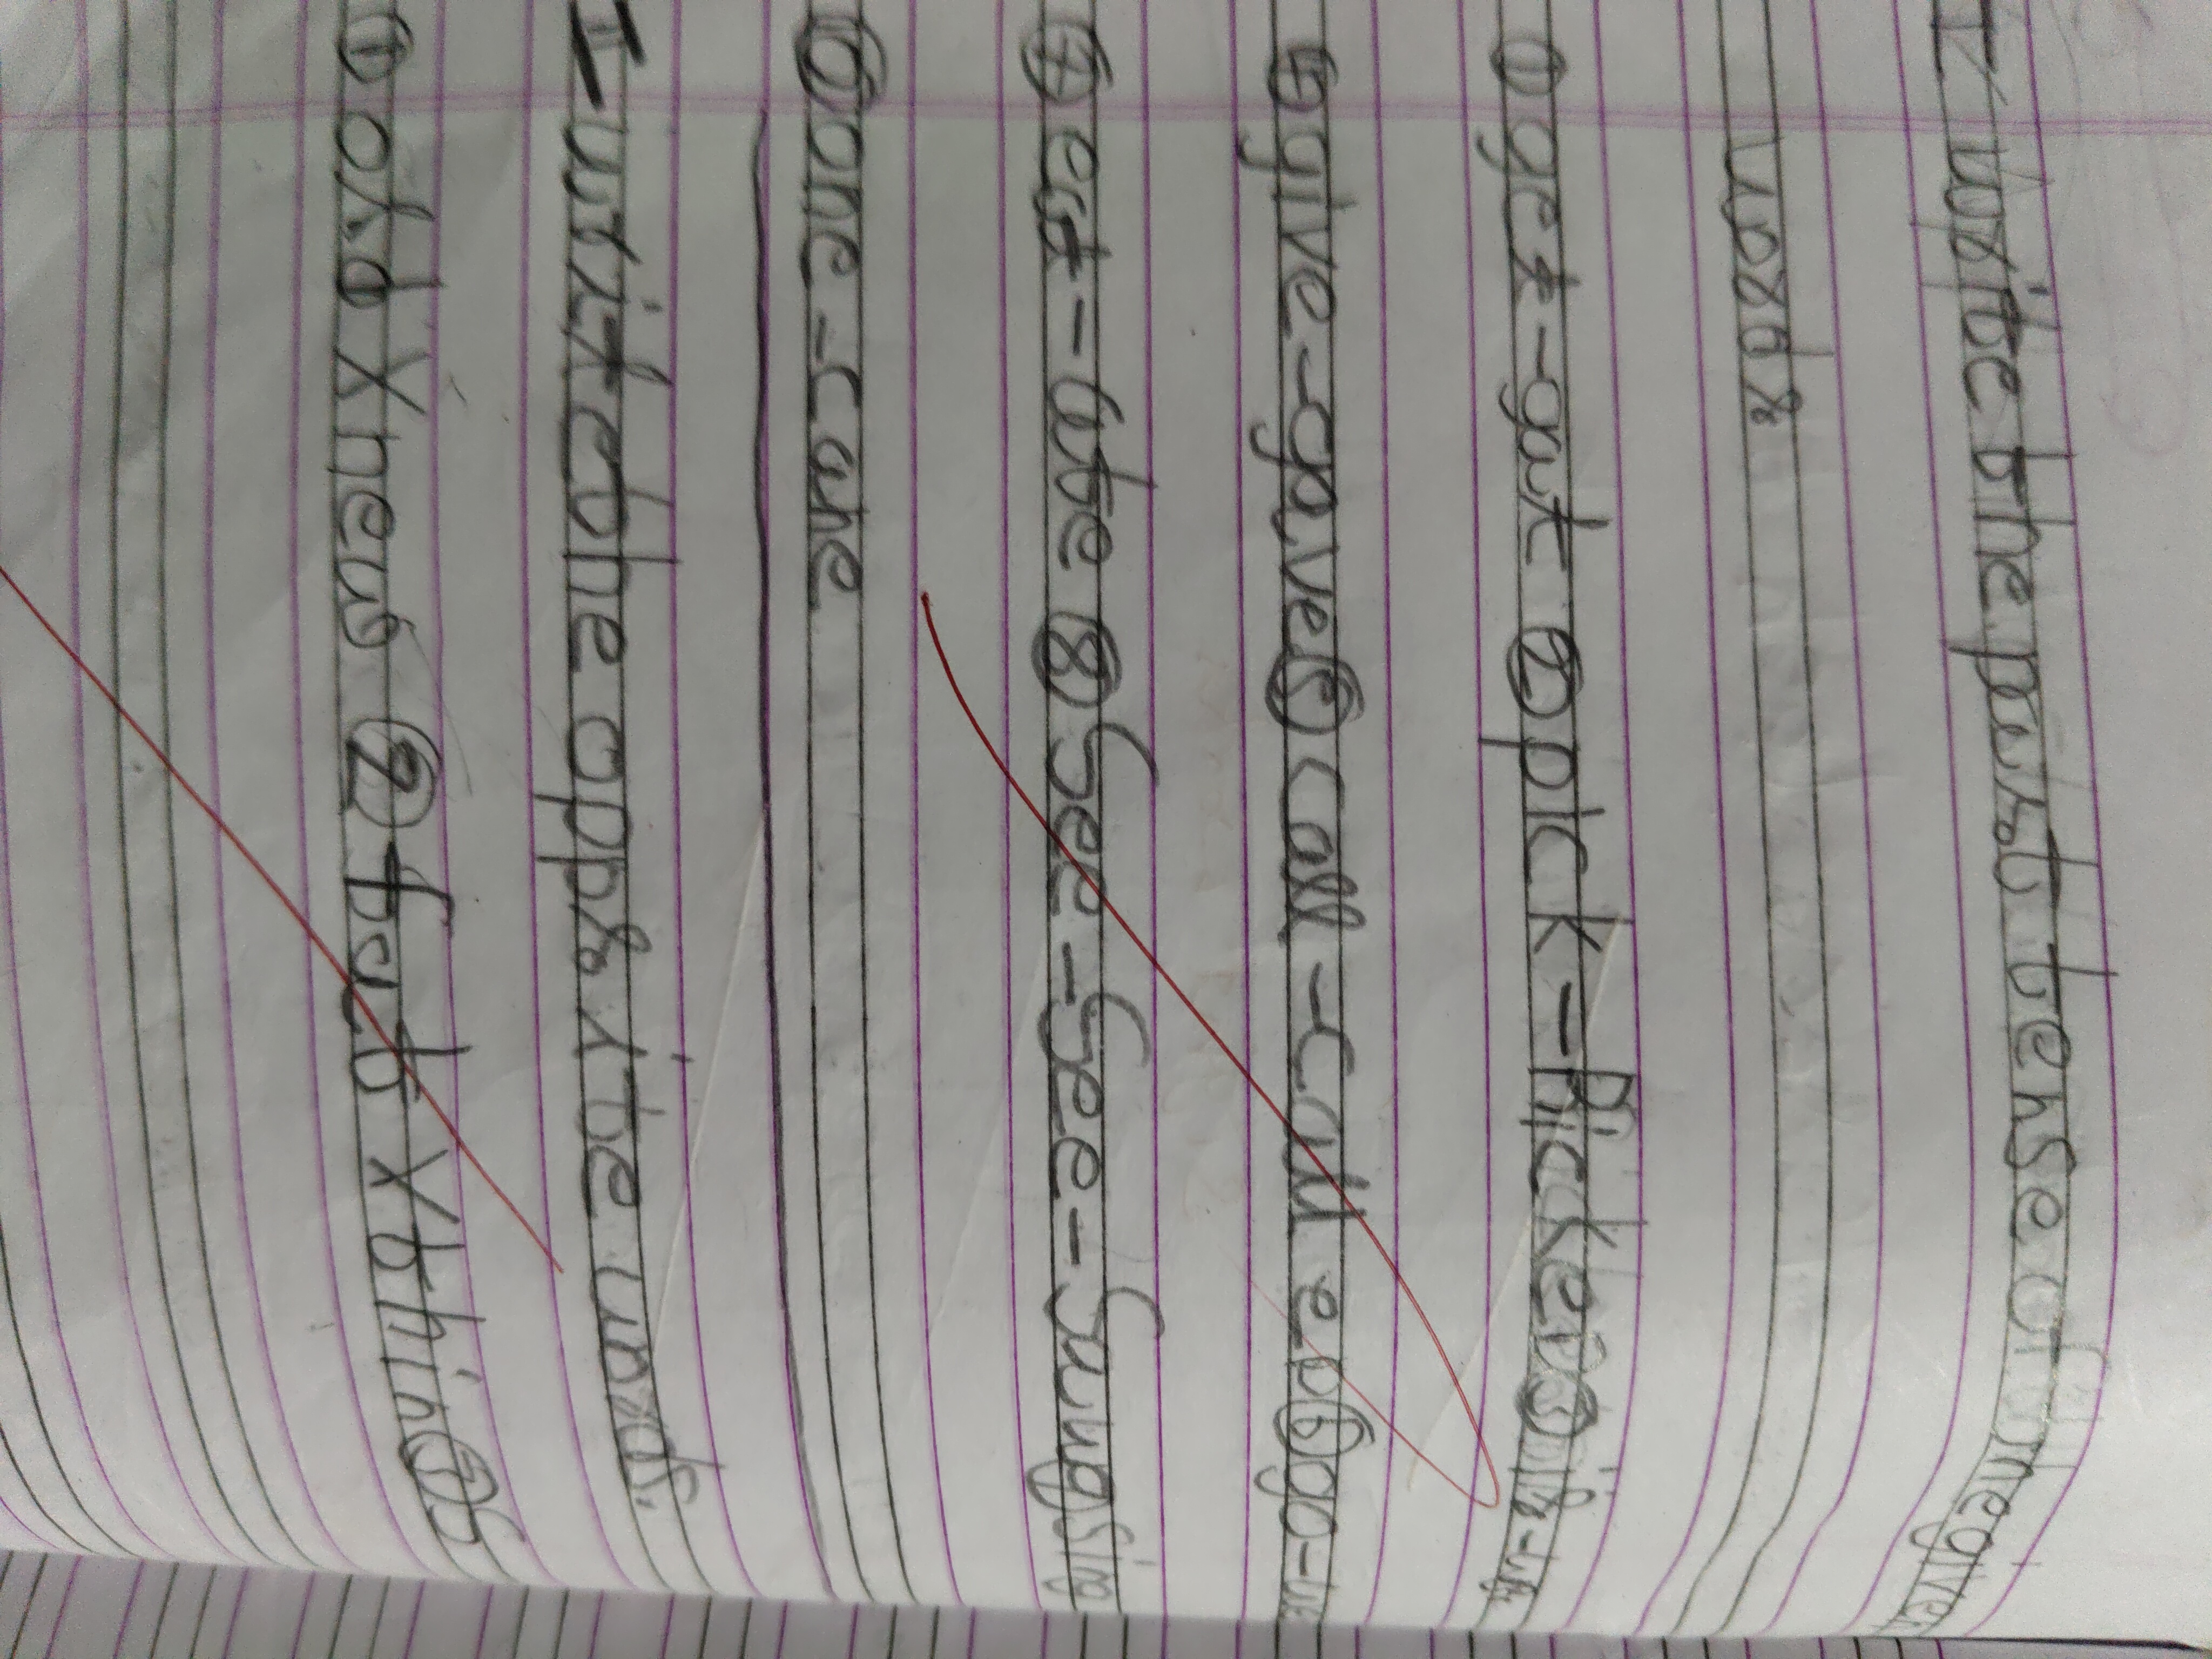 I write the past tense of the given
words
① get - gat ② pick - Picked ③ is -
④ give - gave ⑤ call - called ⑥ go -
⑦ eat - ate ⑧ See - See - Sung
① one - cane
I writethe opposite words.
① old X new ② fat X thin ③